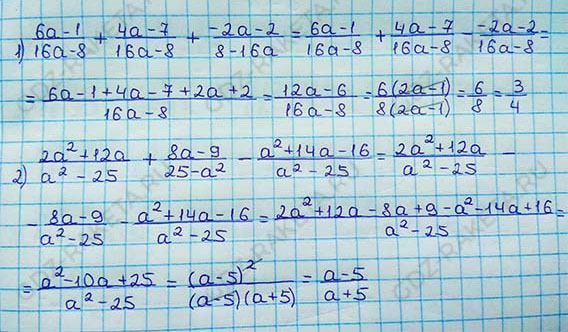 1) (6a-1)/(16a-8) + (4a-7)/(16a-8) + (-2a-2)/(8-16a) = (6a-1)/(16a-8) + (4a-7)/(16a-8) - (-2a-2)/(16a-8) =
= (6a-1+4a-7+2a+2)/(16a-8) = (12a-6)/(16a-8) = 6(2a-1)/8(2a-1) = 6/8 = 3/4
2) (2a²+12a)/(a²-25) + (8a-9)/(25-a²) - (a²+14a-16)/(a²-25) = (2a²+12a)/(a²-25) -
- (8a-9)/(a²-25) - (a²+14a-16)/(a²-25) = (2a²+12a-8a+9-a²-14a+16)/(a²-25) =
= (a²-10a+25)/(a²-25) = (a-5)²/(a-5)(a+5) = (a-5)/(a+5)
GDZ-RAKETA.RU